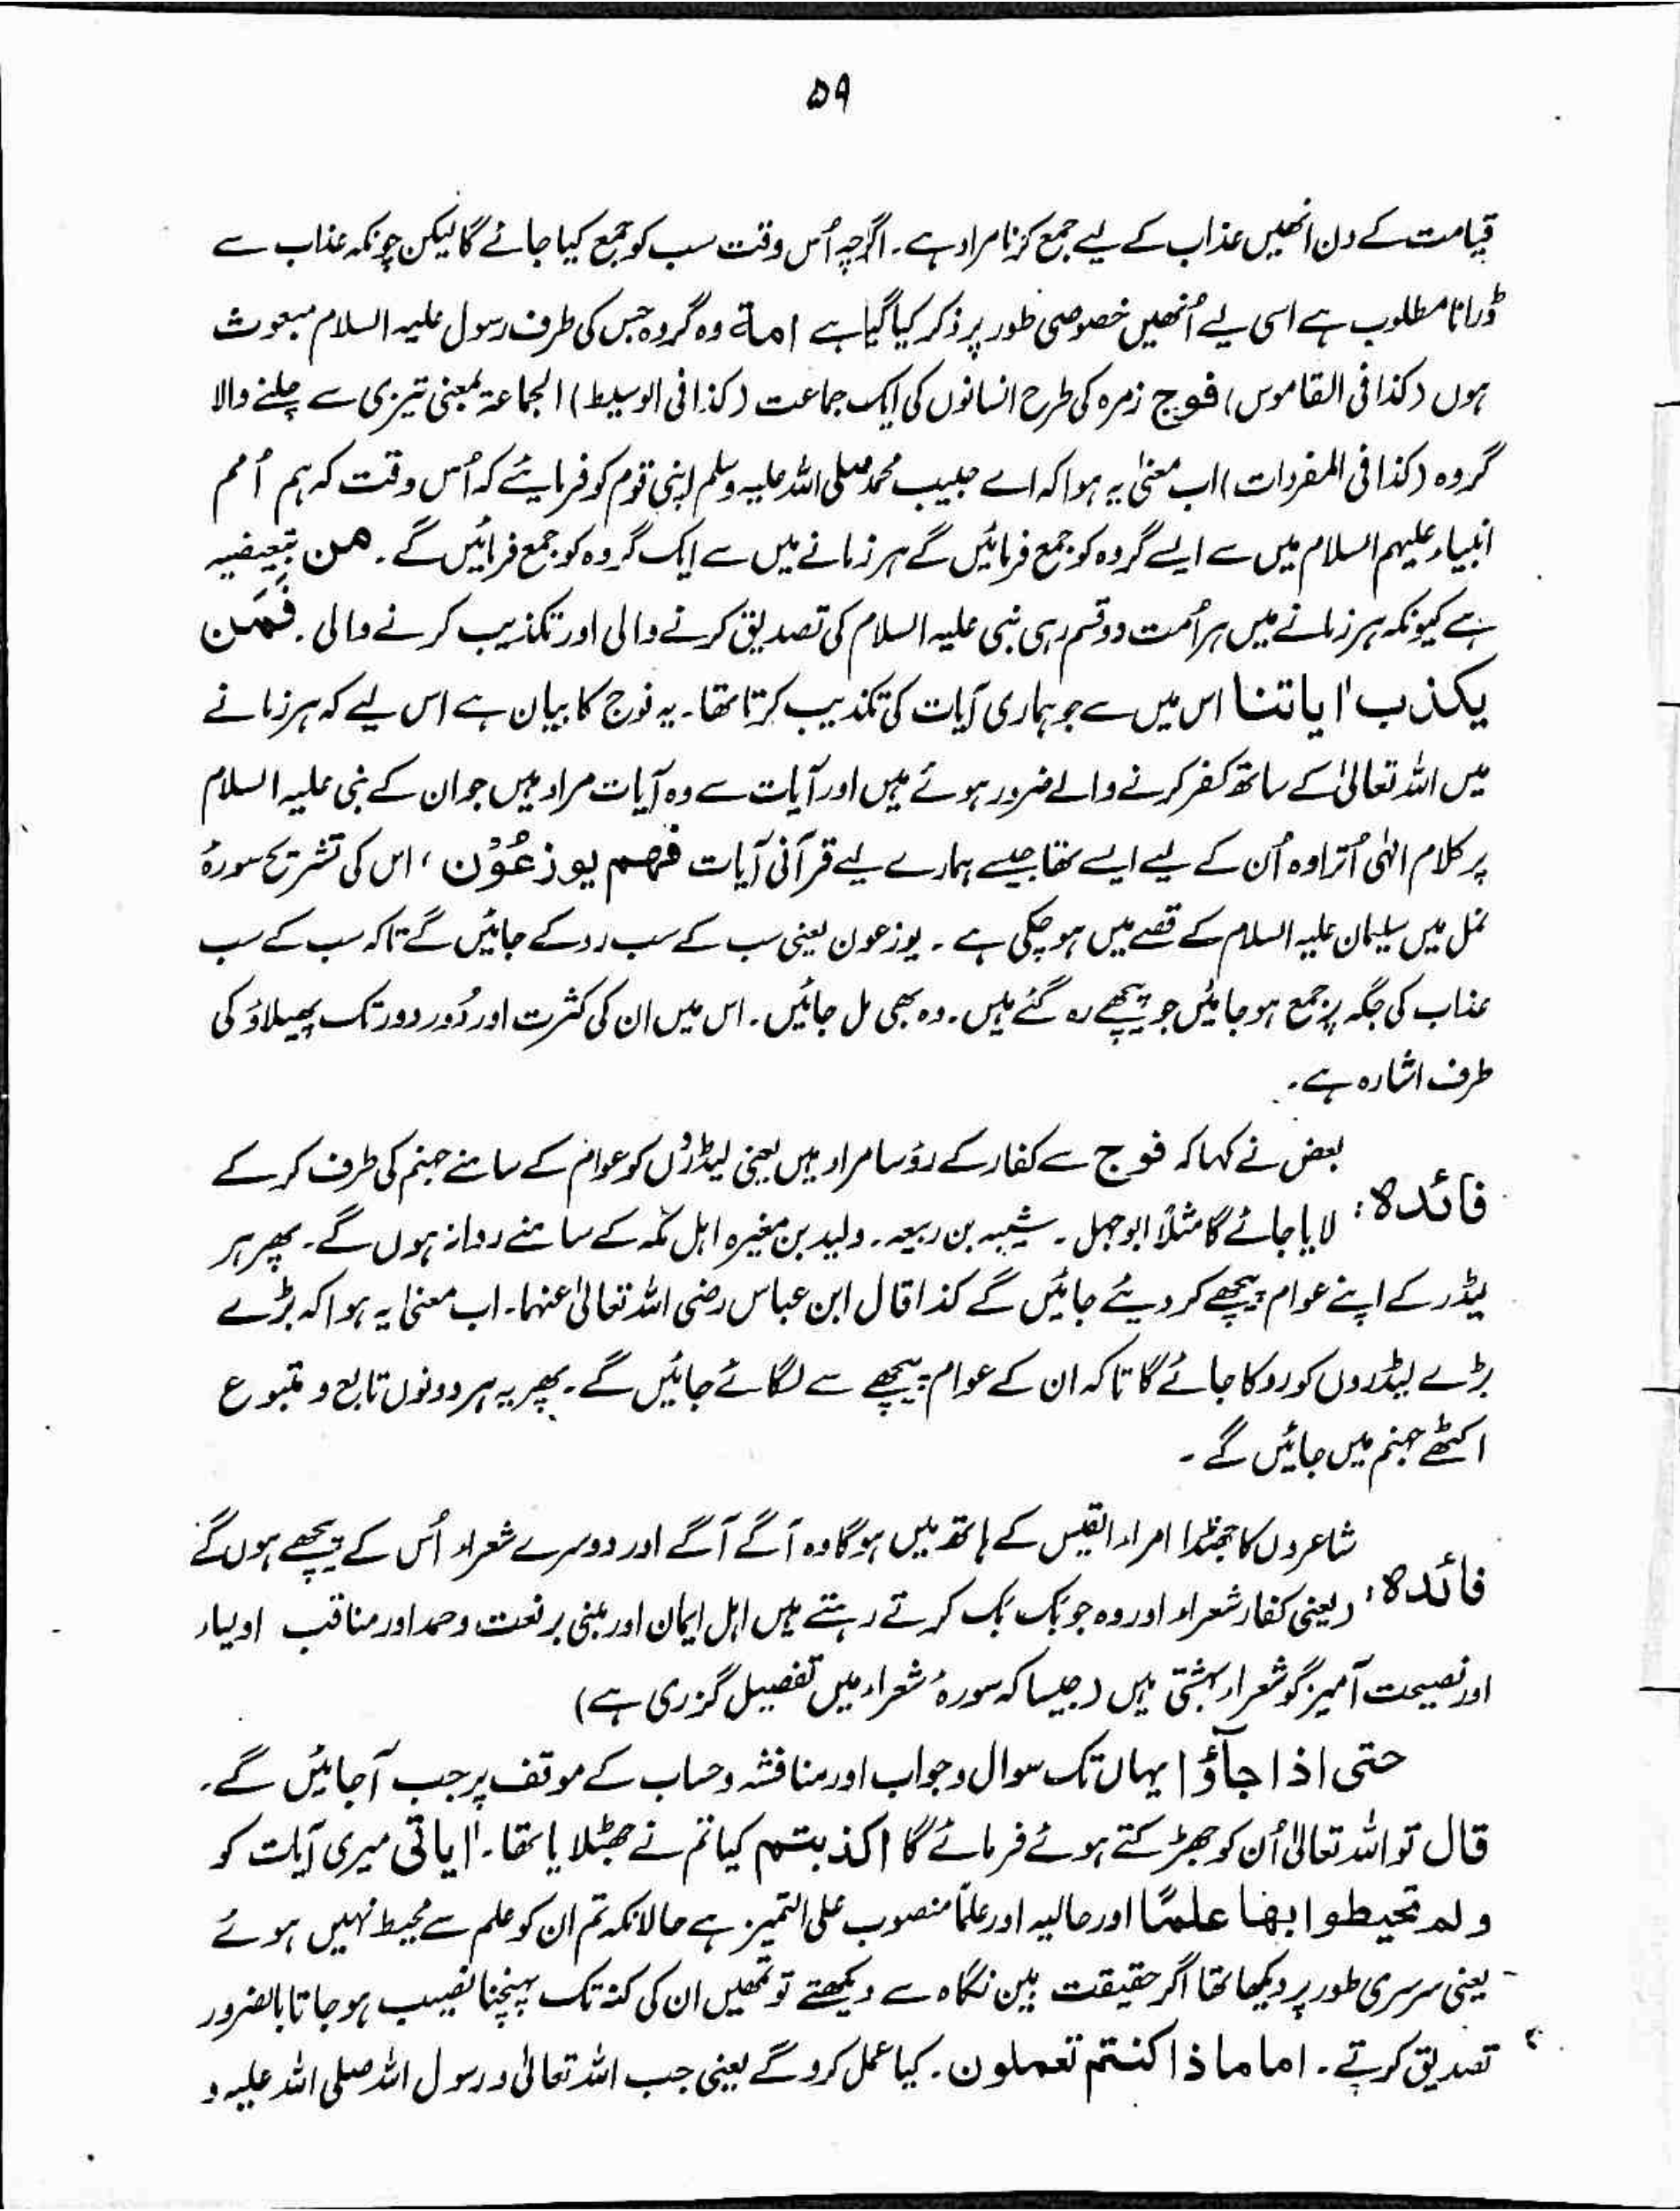 ۵۹
قیامت کے دن انھیں عذاب کے لیے جمع کرنا مراد ہے۔ اگرچہ اُس وقت سب کو جمع کیا جائے گا لیکن چونکہ عذاب سے
ڈرانا مطلوب ہے اسی لیے اُنھیں خصوصی طور پر ذکر کیا گیا ہے امة وہ گروہ جس کی طرف رسول علیہ السلام مبعوث
ہوں (کذا فی القاموس) فوج زمرہ کی طرح انسانوں کی ایک جماعت (کذا فی الوسیط) الجماعۃ بمعنی تیزی سے چلنے والا
گروہ (کذا فی المفردات) اب معنیٰ یہ ہوا کہ اے حبیب محمد صلی اللہ علیہ وسلم اپنی قوم کو فرمایئے کہ اُس وقت کہ ہم اُمم
انبیاء علیہم السلام میں سے ایسے گروہ کو جمع فرمائیں گے ہر زمانے میں سے ایک گروہ کو جمع فرمائیں گے۔ من تبعیضیہ
ہے کیونکہ ہر زمانے میں ہر اُمت دو قسم رہی نبی علیہ السلام کی تصدیق کرنے والی اور تکذیب کرنے والی۔ فمن
یکذب اٰیاتنا اس میں سے جو ہماری آیات کی تکذیب کرتا تھا۔ یہ فوج کا بیان ہے اس لیے کہ ہر زمانے
میں اللہ تعالیٰ کے ساتھ کفر کرنے والے ضرور ہوئے ہیں اور آیات سے وہ آیات مراد ہیں جو ان کے نبی علیہ السلام
پر کلام الٰہی اُترا وہ اُن کے لیے ایسے تھا جیسے ہمارے لیے قرآنی آیات فھم یوزعُوْن، اس کی تشریح سورۂ
نمل میں سلیمان علیہ السلام کے قصے میں ہو چکی ہے۔ یوزعون یعنی سب کے سب روکے جائیں گے تاکہ سب کے سب
عذاب کی جگہ پر جمع ہو جائیں جو پیچھے رہ گئے ہیں۔ وہ بھی مل جائیں۔ اس میں ان کی کثرت اور دُور دور تک پھیلاؤ کی
طرف اشارہ ہے۔
فائدہ: بعض نے کہا کہ فوج سے کفار کے رؤسا مراد ہیں یعنی لیڈروں کو عوام کے سامنے جہنم کی طرف کر کے
لایا جائے گا مثلاً ابوجہل۔ شیبہ بن ربیعہ۔ ولید بن مغیرہ اہل مکہ کے سامنے روانہ ہوں گے۔ پھر ہر
لیڈر کے اپنے عوام پیچھے کر دیئے جائیں گے کذا قال ابن عباس رضی اللہ تعالیٰ عنہما۔ اب معنیٰ یہ ہوا کہ بڑے
بڑے لیڈروں کو روکا جائے گا تاکہ ان کے عوام پیچھے سے لگائے جائیں گے۔ پھر یہ ہر دونوں تابع و متبوع
اکٹھے جہنم میں جائیں گے۔
فائدہ: شاعروں کا جھنڈا امراء القیس کے ہاتھ میں ہوگا وہ آگے آگے اور دوسرے شعراء اُس کے پیچھے ہوں گے
(یعنی کفار شعراء اور وہ جو بک بک کرتے رہتے ہیں اہل ایمان اور مبنی بر نعت و حمد اور مناقب اولیاء
اور نصیحت آمیز گو شعراء بہشتی ہیں (جیسا کہ سورۂ شعراء میں تفصیل گزری ہے)
حتی اذا جآؤا یہاں تک سوال و جواب اور مناقشہ و حساب کے موقف پر جب آجائیں گے۔
قال تو اللہ تعالیٰ اُن کو جھڑکتے ہوئے فرمائے گا اکذبتم کیا تم نے جھٹلایا تھا۔ اٰیاتی میری آیات کو
ولم تحیطوا بھا علمًا اور حالیہ اور علمًا منصوب علی التمیز ہے حالانکہ تم ان کو علم سے محیط نہیں ہوئے
یعنی سرسری طور پر دیکھا تھا اگر حقیقت بین نگاہ سے دیکھتے تو تمھیں ان کی کنہ تک پہنچنا نصیب ہو جاتا بالضرور
تصدیق کرتے۔ اما ماذا کنتم تعملون۔ کیا عمل کرو گے یعنی جب اللہ تعالیٰ و رسول اللہ صلی اللہ علیہ و